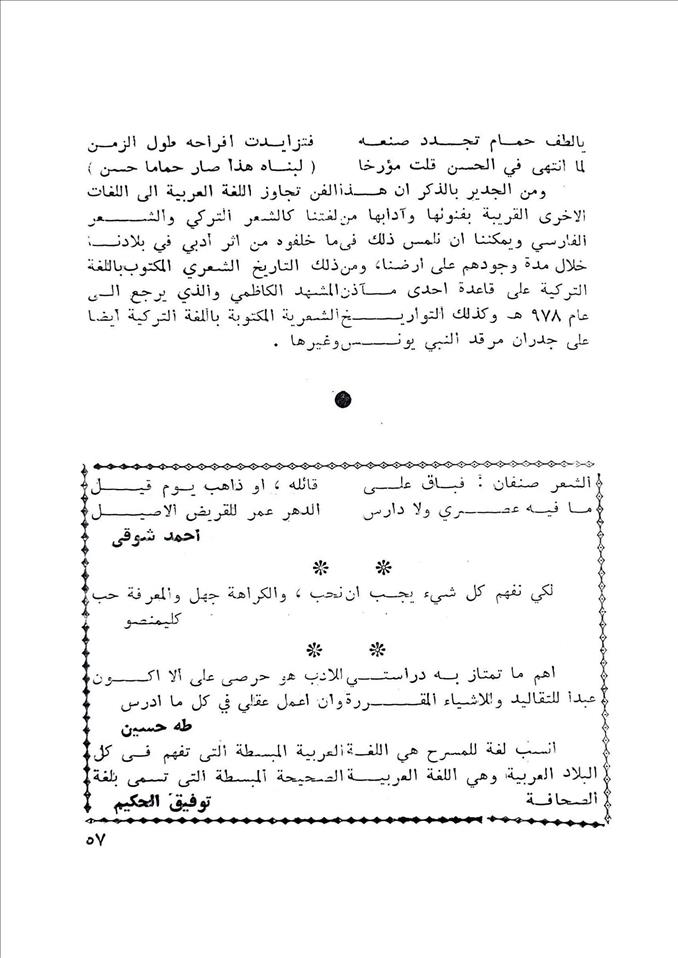 يالطف حمام تجدد صنعه فتزايدت افراحه طول الزمن
لما انتهى في الحسن قلت مؤرخا ( لبناه هذا صار حماما حسن )
ومن الجدير بالذكر ان هذا الفن تجاوز اللغة العربية الى اللغات
الاخرى القريبة بفنونها وآدابها من لغتنا كالشعر التركي والشعر
الفارسي ويمكننا ان نلمس ذلك في ما خلفوه من اثر أدبي في بلادنا
خلال مدة وجودهم على ارضنا، ومن ذلك التاريخ الشعري المكتوب باللغة
التركية على قاعدة احدى مآذن المشهد الكاظمي والذي يرجع الى
عام ٩٧٨ هـ وكذلك التواريخ الشعرية المكتوبة باللغة التركية ايضا
على جدران مرقد النبي يونس وغيرها .
الشعر صنفان : فباق على قائله ، او ذاهب يوم قيل
ما فيه عصري ولا دارس الدهر عمر للقريض الاصيل
احمد شوقي
لكي نفهم كل شيء يجب ان نحب ، والكراهة جهل والمعرفة حب
كليمنصو
اهم ما تمتاز به دراستي للادب هو حرصي على ألا اكون
عبدا للتقاليد وللاشياء المقررة وان اعمل عقلي في كل ما ادرس
طه حسين
انسب لغة للمسرح هي اللغة العربية المبسطة التى تفهم فى كل
البلاد العربية، وهي اللغة العربية الصحيحة المبسطة التى تسمى بلغة
الصحافة توفيق الحكيم
٥٧